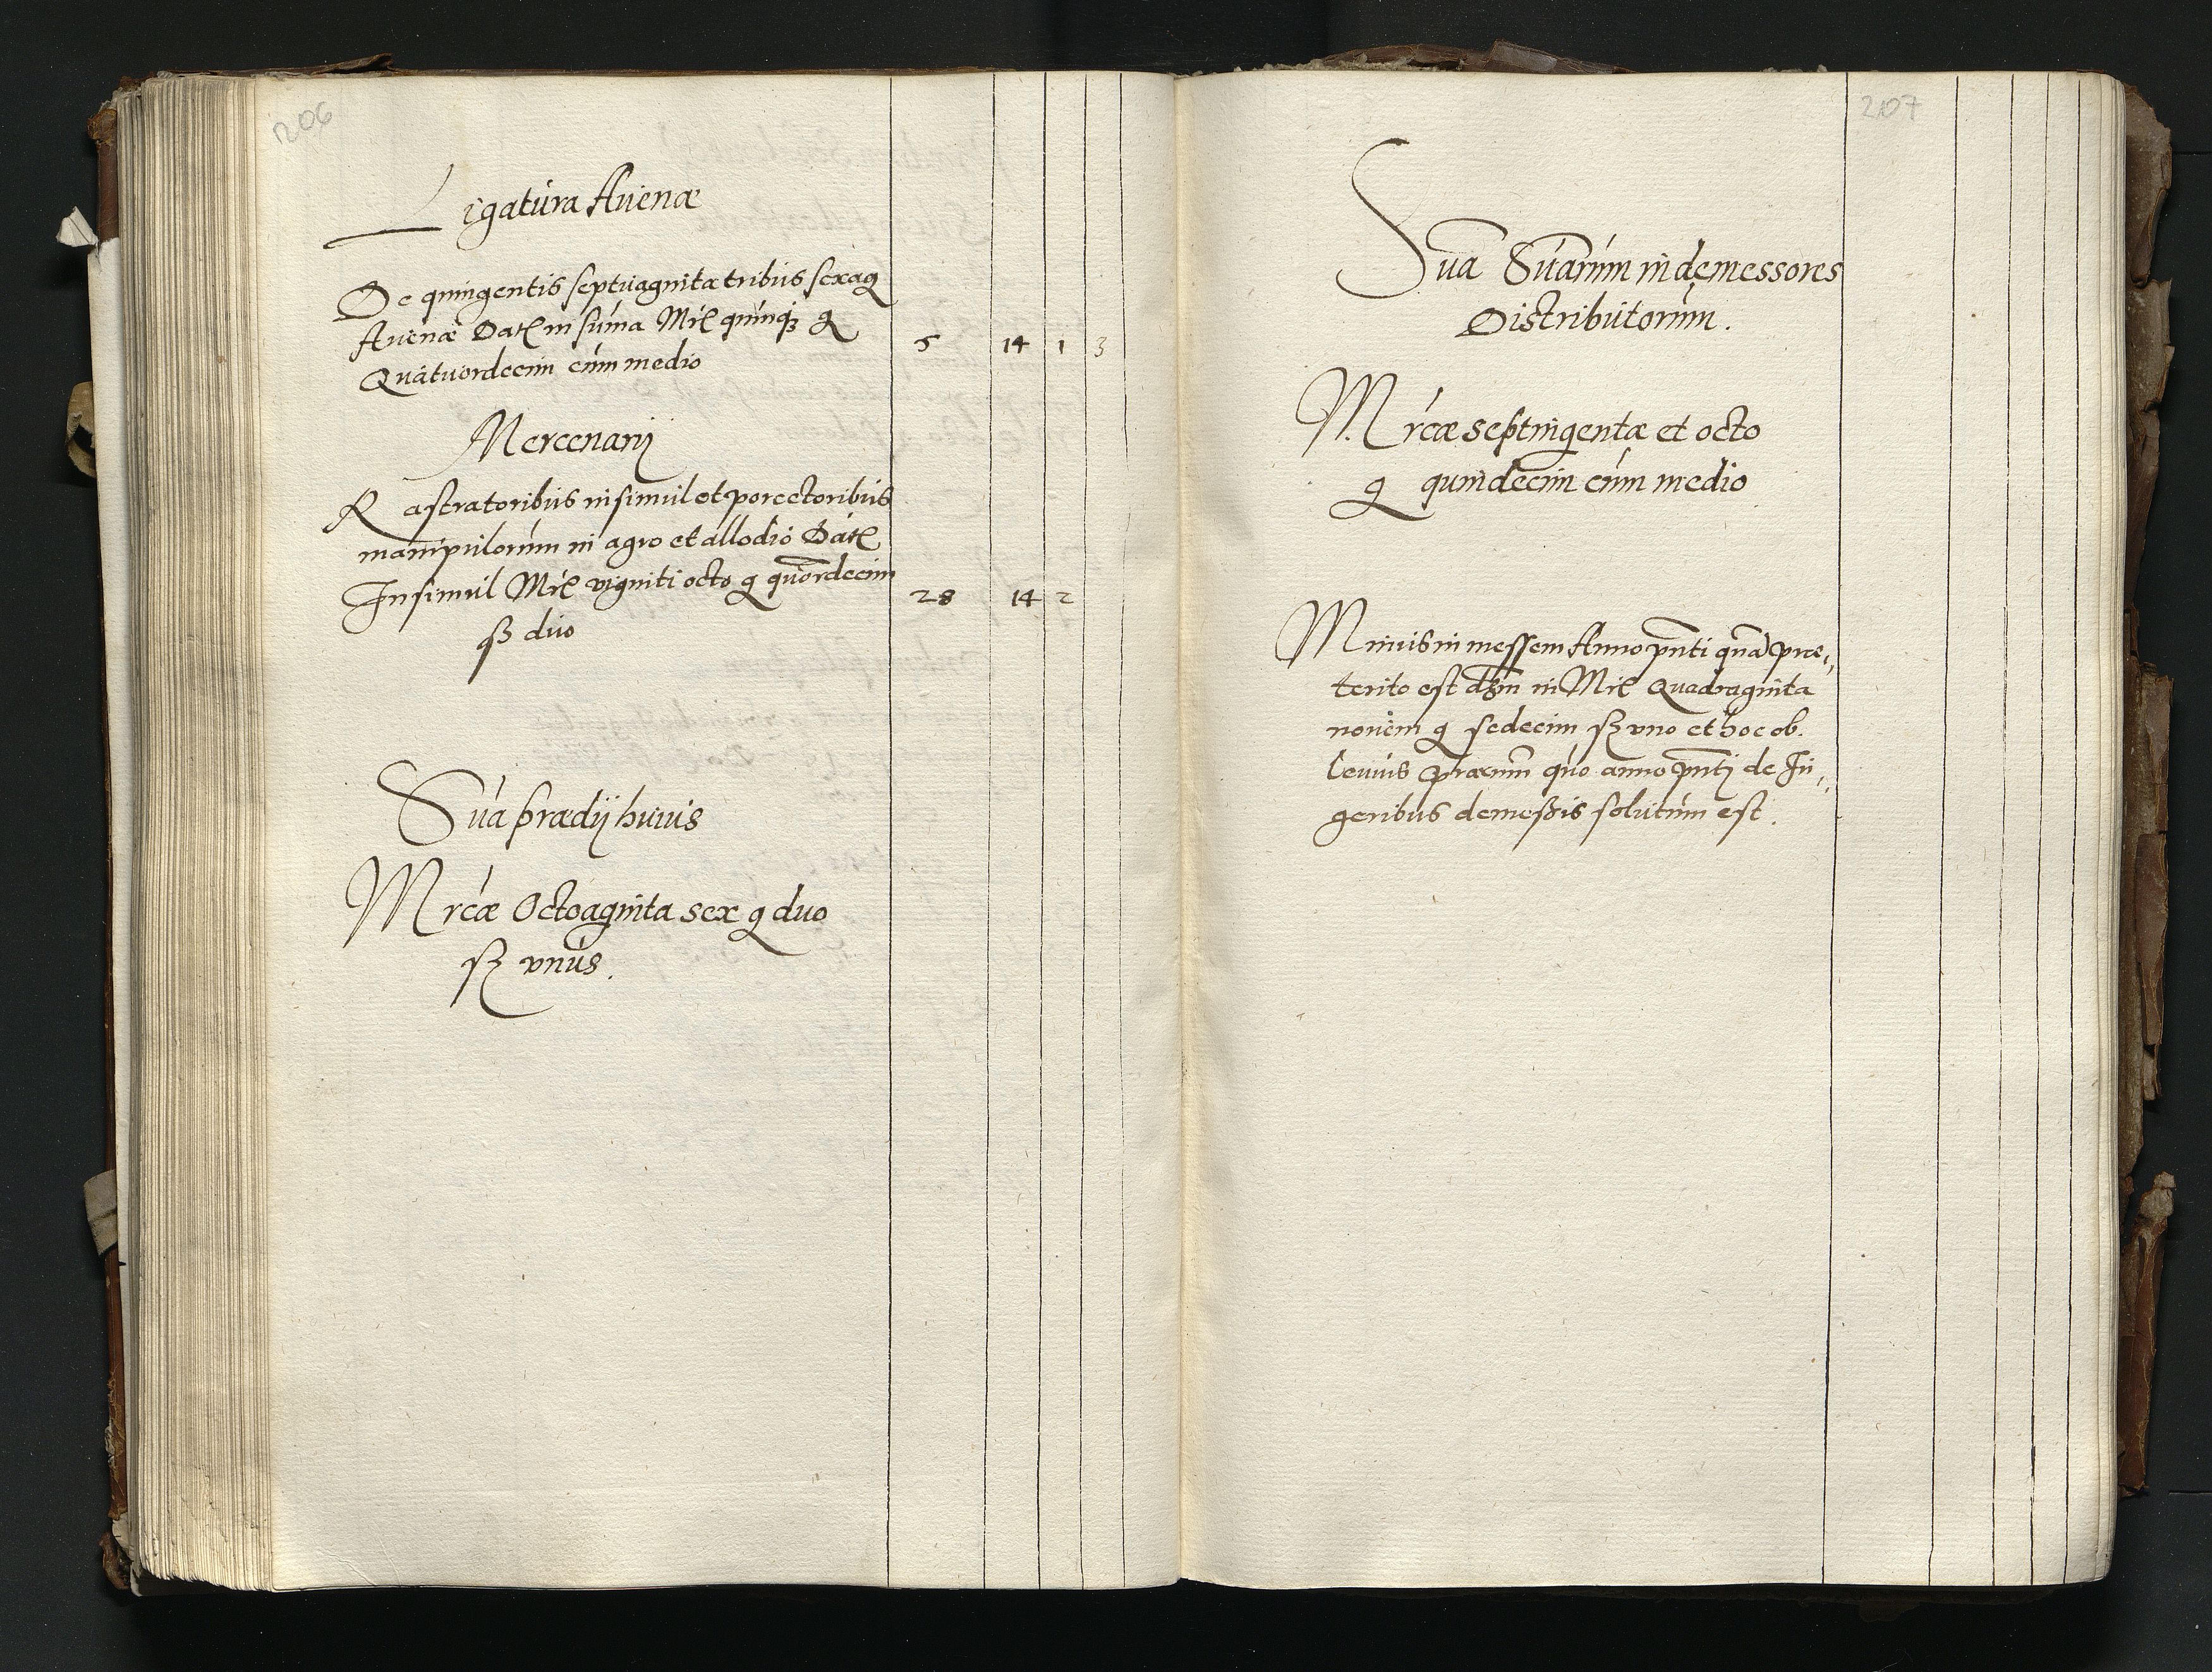 206
Ligatura Auenæ
De quingentis septuaginta tribus sexag
Auenæ Dat in suma Mr quinq3 g
Quatuordecim cum medio 5 14 1 3
Mercenarij
Rastratoribus insimul et porrectoribus
manipulorum in agro et allodio Dat
Insimul Mr viginti octo g quordecim 28 14 2
ß duo
Sua prædij huius
Mrcæ Octoaginta sex g duo
ß vnus.
207
Sua Suarum in demessores
Distributorum.
Mrcæ septingentæ et octo
g quindecim cum medio
Minus in messem Anno pnti qua præ„
terito est in Mr Quadraginta
nouem g sedecim ß vno et hoc ob.
leuius quo anno pnti de Iu„
geribus demeßis solutum est.